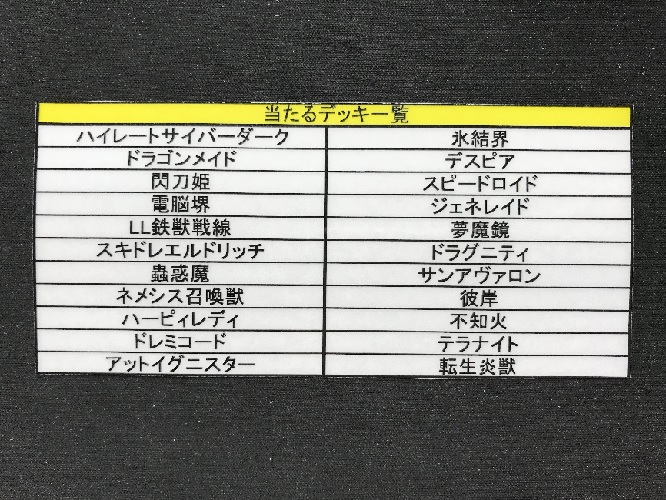 当たるデッキ一覧
ハイレートサイバーダーク 氷結界
ドラゴンメイド デスピア
閃刀姫 スピードロイド
電脳堺 ジェネレイド
LL鉄獣戦線 夢魔鏡
スキドレエルドリッチ ドラグニティ
蟲惑魔 サンアヴァロン
ネメシス召喚獣 彼岸
ハーピィレディ 不知火
ドレミコード テラナイト
アットイグニスター 転生炎獣